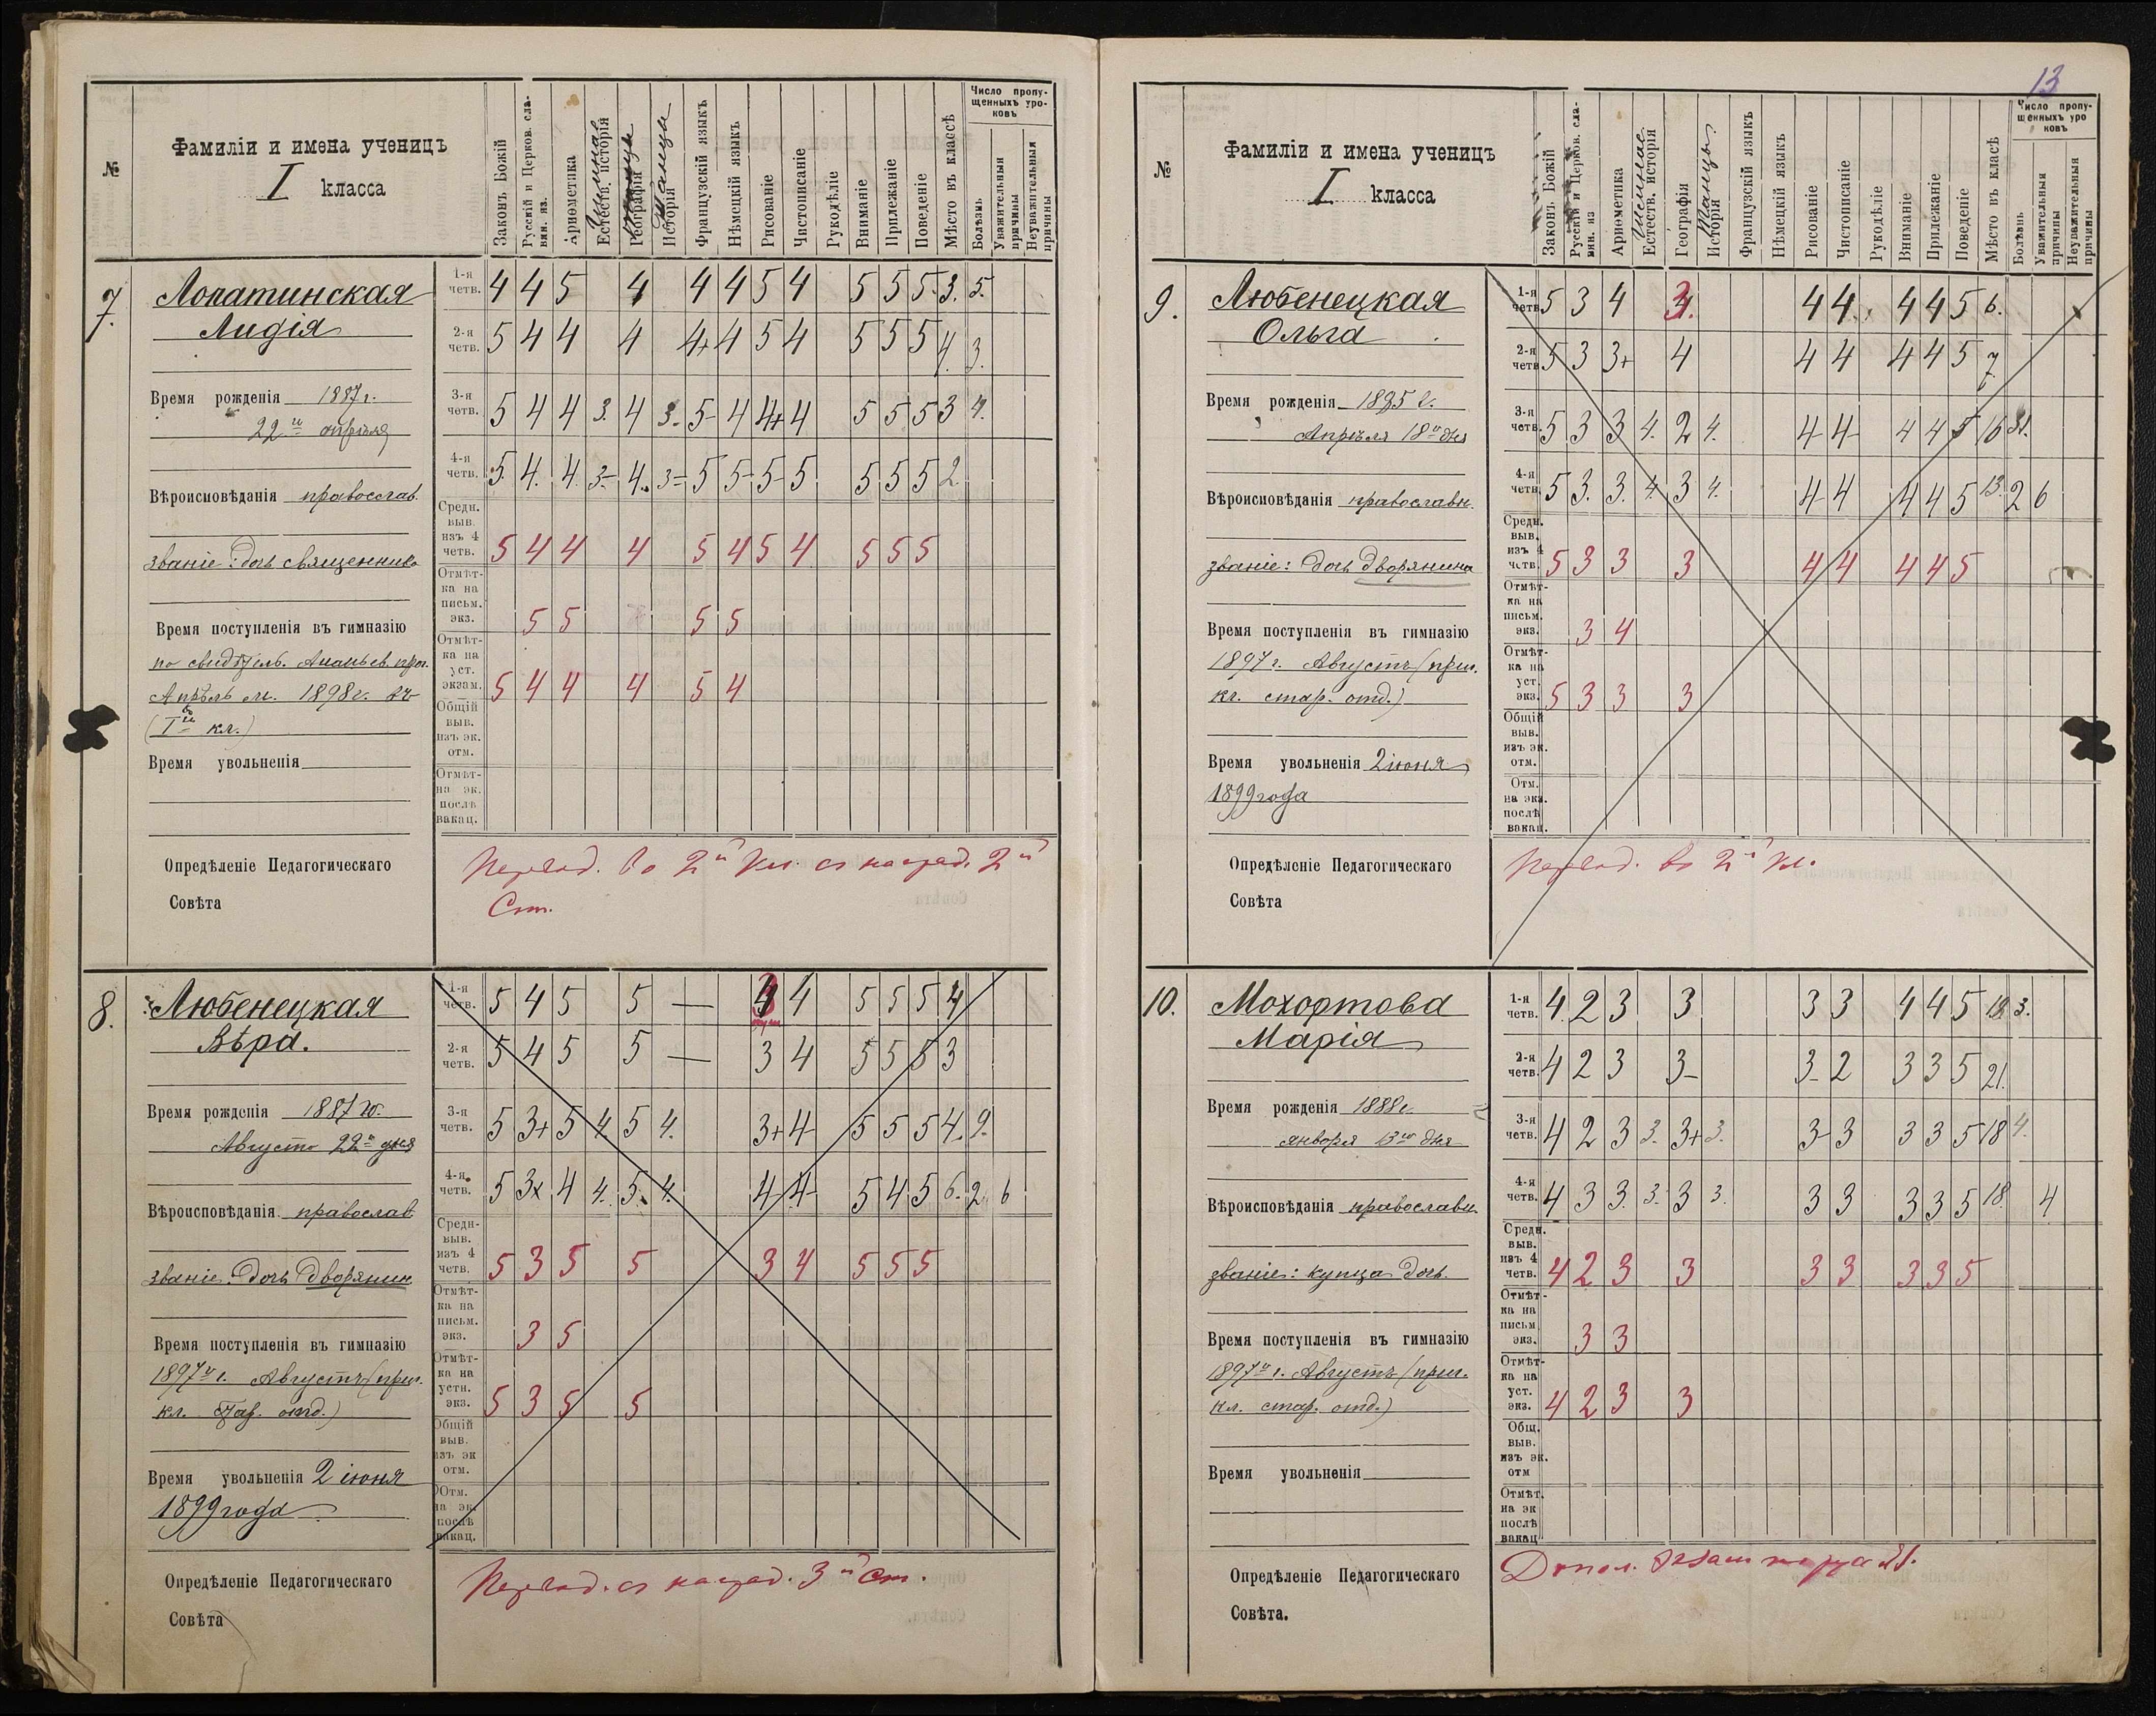 №
Фамиліи и имена ученицъ
I класса
Законъ Божій
Русскій и Церков. сла-
вян. яз.
Ариѳметика
Естеств. исторія
Географія
Исторія
Танцы
Французскій языкъ
Нѣмецкій языкъ
Рисованіе
Чистописаніе
Рукодѣліе
Вниманіе
Прилежаніе
Поведеніе
Мѣсто въ классѣ
Число пропу-
щенныхъ уро-
ковъ
Болѣзнь
Уважительныя
причины
Неуважительныя
причины
7.
Лопатинская
Лидія
Время рожденія 1887 г.
22го апрѣля
Вѣроисповѣданія православ.
званіе: дочь священника
Время поступленія въ гимназію
по свидѣтель. Ананьев. прог.
Апрѣль м. 1898 г.
кл.)
Время увольненія
1-я четв. 4 4 5 4 4 4 5 4 5 5 5 3. 5.
2-я четв. 5 4 4 4 4+ 4 5 4 5 5 5 4. 3.
3-я четв. 5 4 4 3. 4 3- 5- 4 4+ 4 5 5 5 3 4.
4-я четв. 5. 4. 4. 3- 4. 3- 5 5- 5- 5 5 5 5 2.
Средн. выв. изъ 4 четв. 5 4 4 4 5 4 5 4 5 5 5
Отмѣт-ка на письм. экз. 5 5 5 5
Отмѣт-ка на уст. экзам. 5 4 4 4 5 4
Общій выв. изъ эк. отм.
Отмѣт- на эк. послѣ вакац.
Опредѣленіе Педагогическаго
Совѣта
Перевод. во 2й кл. съ наград. 2й
Ст.
8.
Любенецкая
Вѣра.
Время рожденія 1887 го.
Августа 22го дня
Вѣроисповѣданія православ.
званіе: Дочь Дворянин
Время поступленія въ гимназію
1897 г. Августъ (приг.
кл. стар. отд.)
Время увольненія 2 іюня
1899 года
1-я четв. 5 4 5 5 — 4 4 5 5 5 4
2-я четв. 5 4 5 5 — 3 4 5 5 5 3
3-я четв. 5 3+ 5 4. 5 4. 3+ 4- 5 5 5 4. 9.
4-я четв. 5 3x 4 4. 5. 4. 4 4- 5 4 5 6. 2 6
Средн- выв. изъ 4 четв. 5 3 5 5 3 4 5 5 5
Отмѣт-ка на письм. экз. 3 5
Отмѣт-ка на устн. экз. 5 3 5 5
Общій выв. изъ эк отм.
Отм. на эк. послѣ вакац.
Опредѣленіе Педагогическаго
Совѣта
Перевод. съ наград. 3й ст.
13
№
Фамиліи и имена ученицъ
I класса
Законъ Божій
Русскій и Церков. сла-
вян. яз
Ариѳметика
Естеств. исторія
Географія
Исторія
Танцы
Французскій языкъ
Нѣмецкій языкъ
Рисованіе
Чистописаніе
Рукодѣліе
Вниманіе
Прилежаніе
Поведеніе
Мѣсто въ класѣ
Число пропу-
щенныхъ уро
ковъ
Болѣзнь
Уважительныя
причины
Неуважительныя
причины
9.
Любенецкая
Ольга
Время рожденія 1885 г.
Апрѣля 18го дня
Вѣроисповѣданія православн.
званіе: Дочь дворянина
Время поступленія въ гимназію
1897 г. Августъ (приг.
кл. стар. отд.)
Время увольненія 2 іюня
1899 года
1-я четв. 5 3 4 4 4. 4 4 5 6.
2-я четв. 5 3 3+ 4 4 4 4 4 5 7
3-я четв. 5 3 3 4. 2 4. 4 4- 4 4 5 16 31.
4-я четв. 5 3. 3. 4. 3 4. 4 4 4 4 5 13. 2 6
Средн. выв. изъ 4 четв. 5 3 3 3 4 4 4 4 5
Отмѣт-ка на письм. экз. 3 4
Отмѣт-ка на уст. экз. 5 3 3 3
Общій выв. изъ эк. отм.
Отм. на экз. послѣ вакац.
Опредѣленіе Педагогическаго
Совѣта
Перевод. во 2й кл.
10.
Мохортова
Марія
Время рожденія 1888 г.
января 13го дня
Вѣроисповѣданія православн.
званіе: купца дочь.
Время поступленія въ гимназію
1897 г. Августъ (приг.
кл. стар. отд.)
Время увольненія
1-я четв. 4. 2 3 3 3 3 4 4 5 18. 3.
2-я четв. 4 2 3 3- 3- 2 3 3 5 21.
3-я четв. 4 2 3 3. 3+ 3. 3- 3 3 3 5 18 4.
4-я четв. 4 3 3. 3. 3 3. 3 3 3 3 5 18. 4
Средн. выв. изъ 4 четв. 4 2 3 3 3 3 3 3 5
Отмѣт-ка на письм. экз. 3 3
Отмѣт-ка на уст. экз. 4 2 3 3
Общ. выв. изъ эк. отм
Отмѣт. на эк послѣ вакац
Опредѣленіе Педагогическаго
Совѣта.
Допол. экзам